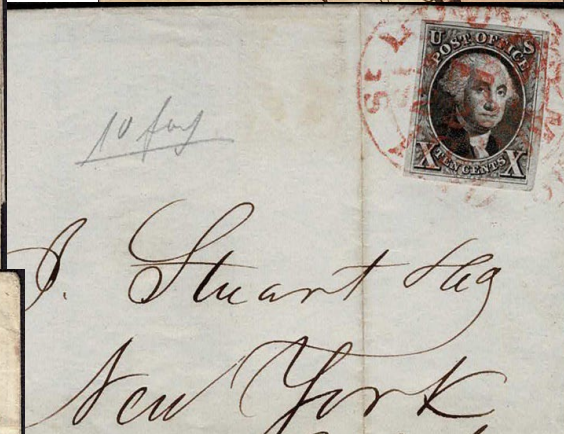 ST. L
U S
POST OFFICE
X TEN CENTS X
10
J. Stuart Esq
New York